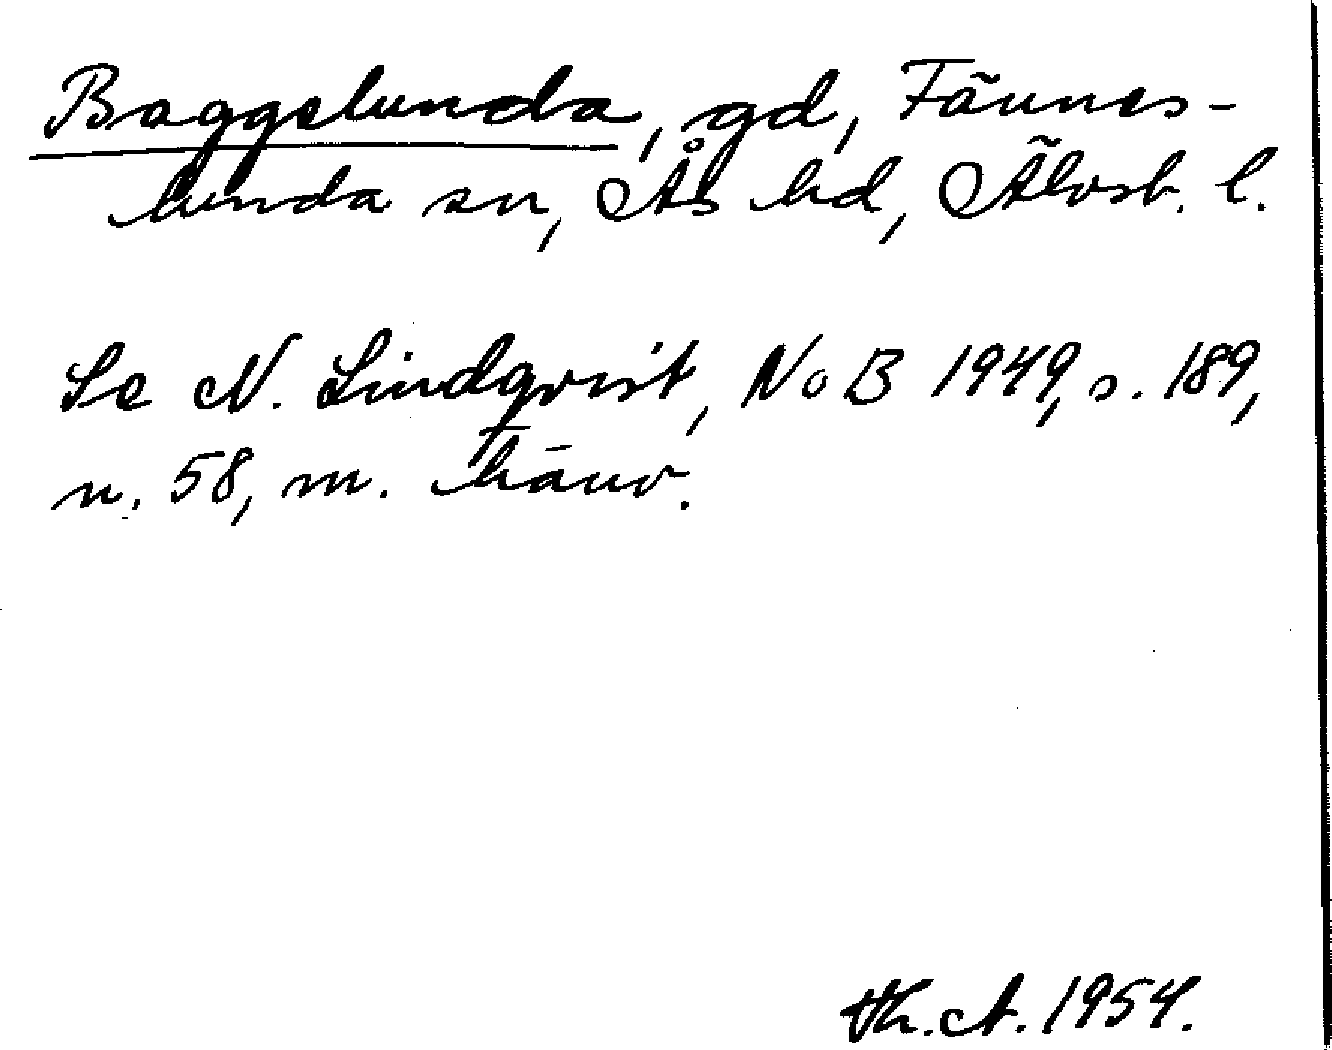 Baggelunda, gd, Fännes-
lunda sn, Ås hd, Älvsb. l.
Se N. Lindqvist, NoB 1949, s. 189,
n. 58, m. hänv.
Th. A. 1954.